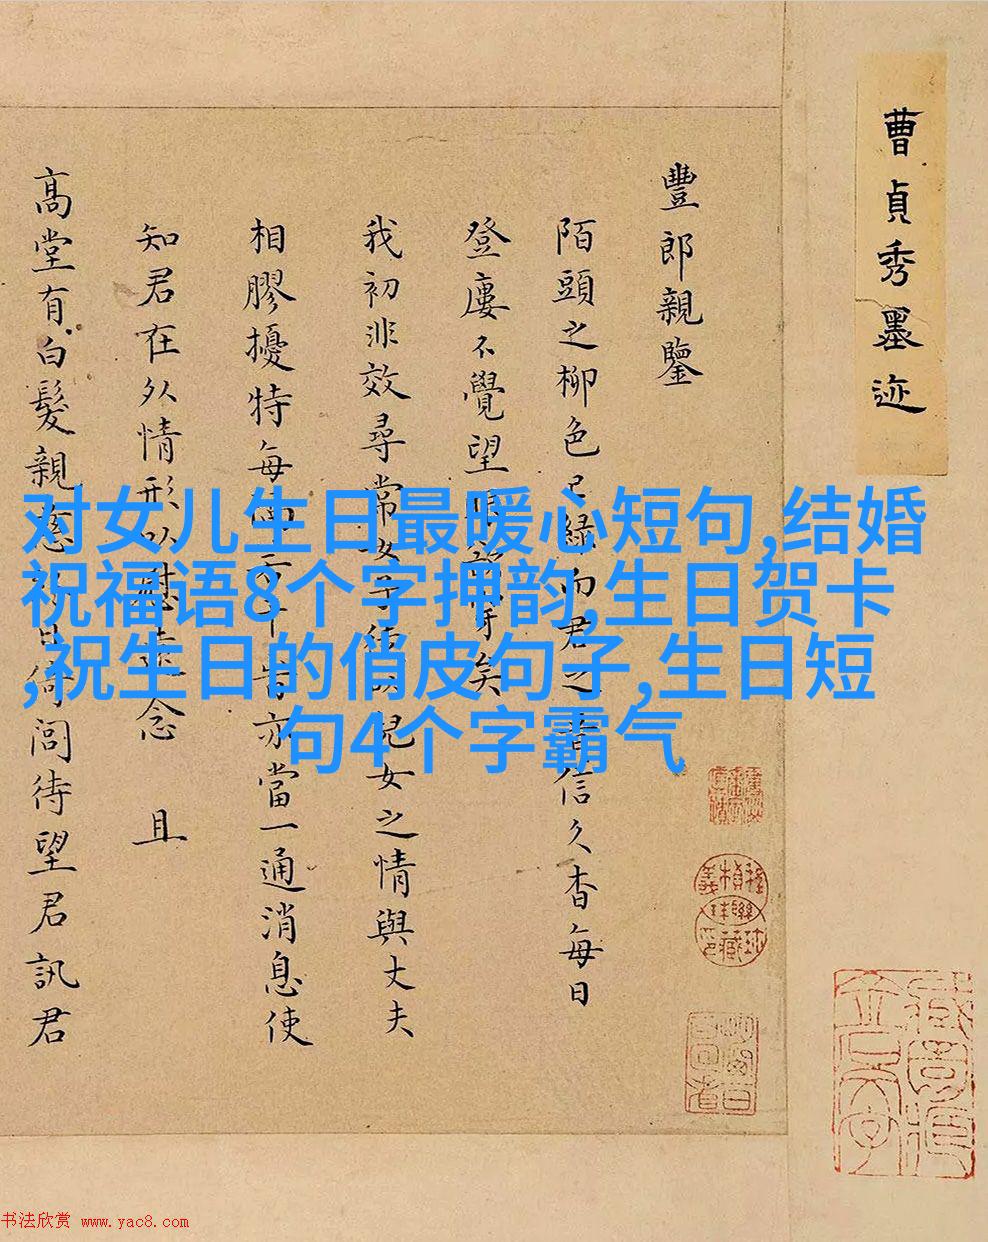 曹貞秀墨迹
豐郎親鑒
陌頭之柳色已綠而君之音信久杳每日
登廔不覺望眼矣
我初非效尋常女子兒女之情與丈夫
相膠擾特每亦當一通消息使
知君在外情形以慰遠念 且
高堂有白髮親日倚閭待望君訊君
对女儿生日最暖心短句,结婚
祝福语8个字押韵,生日贺卡
,祝生日的俏皮句子,生日短
句4个字霸气
书法欣赏 www.yac8.com